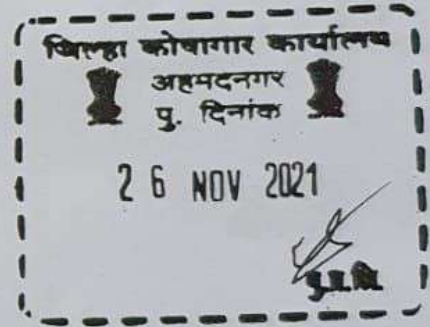 जिल्हा कोषागार कार्यालय
अहमदनगर
पु. दिनांक
2 6 NOV 2021